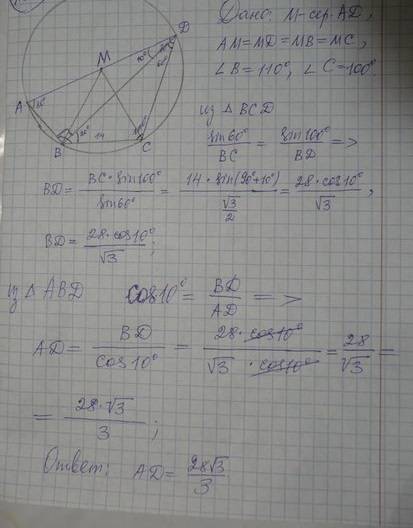 Дано: M-сер. AD,
AM=MD=MB=MC,
∠B=110°, ∠C=100°
D
M
A
B
C
14
из △ BCD
sin60°/BC = sin100°/BD =>
BD = BC·sin100°/sin60° = 14·sin(90°+10°)/(√3/2) = 28·cos10°/√3,
BD = 28·cos10°/√3;
из △ ABD cos10° = BD/AD =>
AD = BD/cos10° = 28·cos10°/√3·cos10° = 28/√3 =
= 28·√3/3;
Ответ: AD = 28√3/3